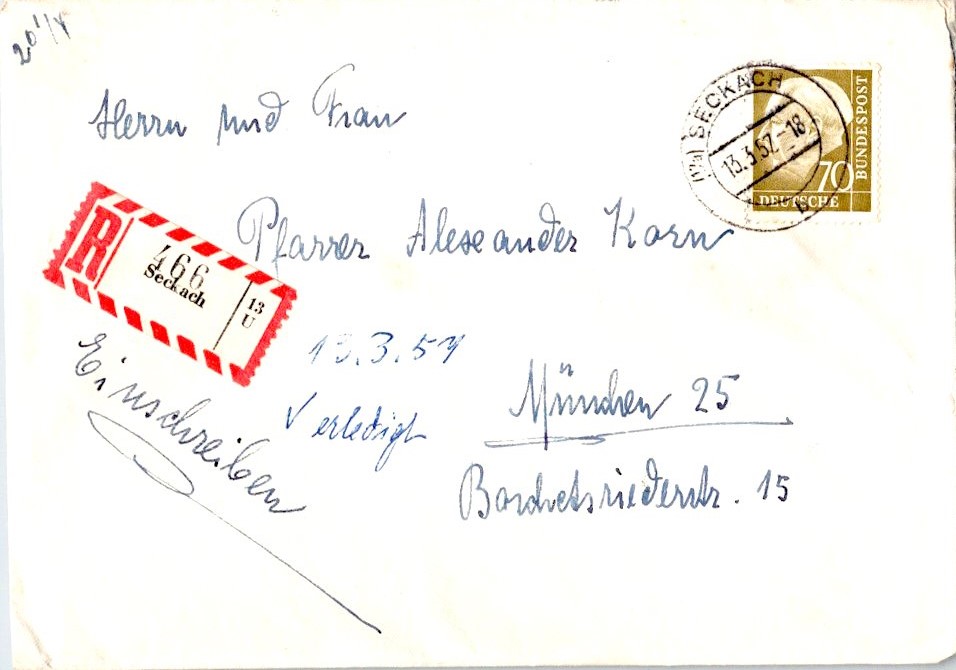 20 1/4
Herrn und Frau
(17a) SECKACH
13.3.57.-18
b
70
DEUTSCHE
BUNDESPOST
Pfarrer Alexander Korn
R
466
Seckach
13
U
13.3.57
√ erledigt
Einschreiben
München 25
15